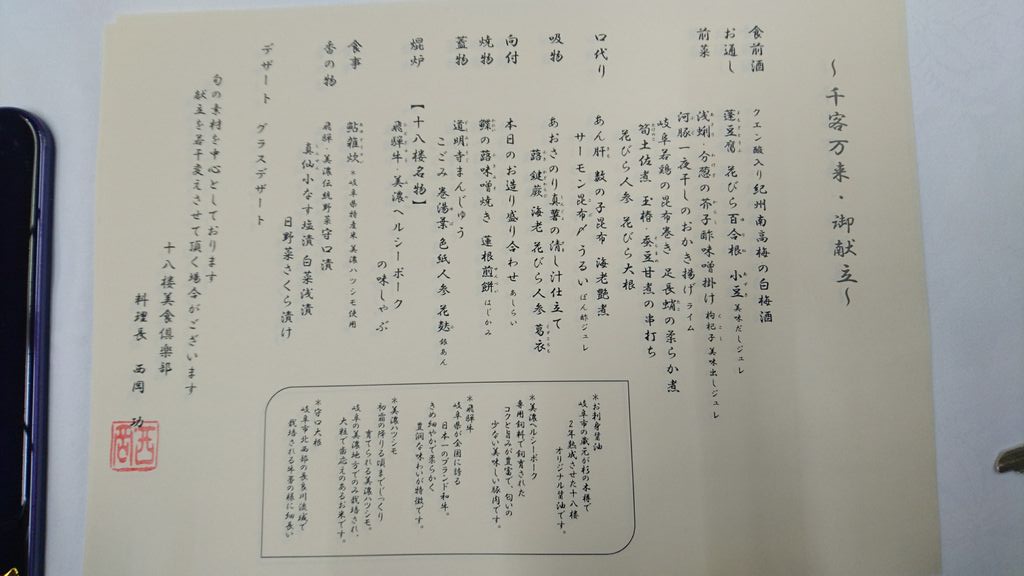 ～千客万来・御献立～
食前酒 クエン酸入り紀州南高梅の白梅酒
お通し 蓬豆腐 花びら百合根 小豆 美味だしジュレ
前菜 浅蜊・分葱の芥子酢味噌掛け 枸杞子 美味出しジュレ
河豚一夜干しのおかき揚げ ライム
岐阜若鶏の昆布巻き 足長蛸の柔らか煮
筍土佐煮 玉椿・蚕豆甘煮の串打ち
花びら人参 花びら大根
口代り あん肝 数の子昆布 海老艶煮
サーモン昆布〆 うるい ぽん酢ジュレ
吸物 あおさのり真薯の清し汁仕立て
蕗 鍵蕨 海老 花びら人参 葛衣
向付 本日のお造り盛り合わせ あしらい
焼物 鰈の蕗味噌焼き 蓮根煎餅 はじかみ
蓋物 道明寺まんじゅう
こごみ 巻湯葉 色紙人参 花麩 銀あん
焜炉 【十八楼名物】
飛騨牛・美濃ヘルシーポーク
の味しゃぶ
食事 鮎雑炊 ＊岐阜県特産米美濃ハツシモ使用
香の物 飛騨・美濃伝統野菜守口漬
真仙小なす塩漬 白菜浅漬
日野菜さくら漬け
デザート グラスデザート
旬の素材を中心としております
献立を若干変えさせて頂く場合がございます
十八楼美食倶楽部
料理長 西岡 功
西岡
＊お刺身醤油
岐阜市の蔵元が杉の木樽で
2年熟成させた十八楼
オリジナル醤油です。
＊美濃ヘルシーポーク
専用飼料で飼育された
コクと旨みが豊富で、匂いの
少ない美味しい豚肉です。
＊飛騨牛
岐阜県が全国に誇る
日本一のブランド和牛。
きめ細やかで柔らかく
豊潤な味わいが特徴です。
＊美濃ハツシモ
初霜の降りる頃までじっくり
育てられる美濃ハツシモ。
岐阜の美濃地方でのみ栽培され、
大粒で歯応えのあるお米です。
＊守口大根
岐阜市北西部の長良川流域で
栽培される牛蒡の様に細長い